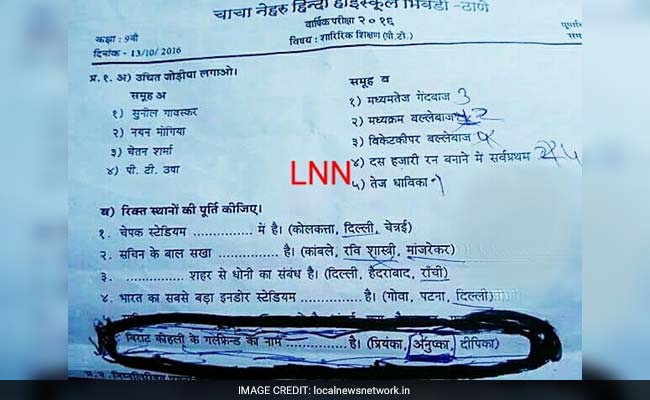 चाचा नेहरु हिन्दी हाईस्कूल भिवंडी -ठाणे
वार्षिक परीक्षा २०१६
कक्षा: 9वी
दिनांक - 13/10/ 2016
विषय : शारिरिक शिक्षण (पी.टी.)
प्र.१. अ) उचित जोड़ीया लगाओ।
समूह अ
१) सुनील गावस्कर
२) नयन मोंगिया
३) चेतन शर्मा
४) पी. टी. उषा
समूह व
१) मध्यमतेज गेंदबाज 3
२) मध्यक्रम बल्लेबाज 2
३) विकेटकीपर बल्लेबाज
४) दस हजारी रन बनाने में सर्वप्रथम
५) तेज धाविका
LNN
ब) रिक्त स्थानों की पूर्ति कीजिए।
१. चेपक स्टेडियम ................ में है। (कोलकत्ता, दिल्ली, चेन्नई)
२. सचिन के बाल सखा ............... है। (कांबले, रवि शास्त्री, मांजरेकर)
३. ............... शहर से धोनी का संबंध है। (दिल्ली, हैदराबाद, राँची)
४. भारत का सबसे बड़ा इनडोर स्टेडियम ............... है। (गोवा, पटना, दिल्ली)
विराट कोहली के गर्लफ्रेन्ड का नाम ............... है। (प्रियंका, अनुष्का, दीपिका)
IMAGE CREDIT: localnewsnetwork.in